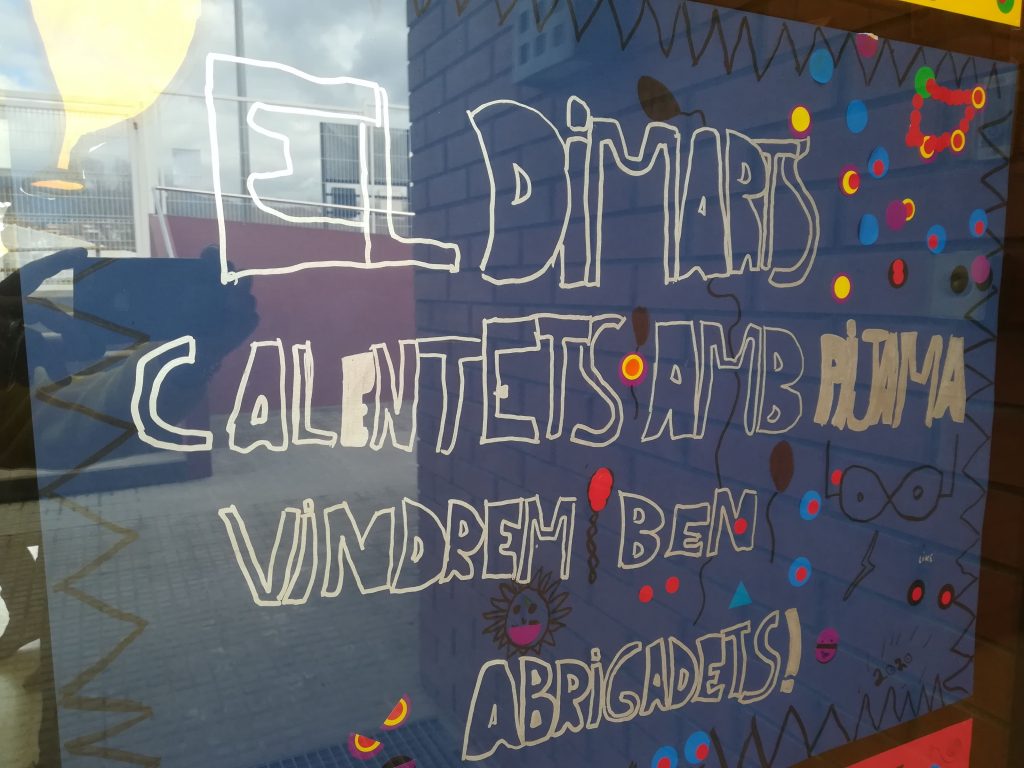 EL DIMARTS
CALENTETS AMB PIJAMA
VINDREM BEN
ABRIGADETS!
2020